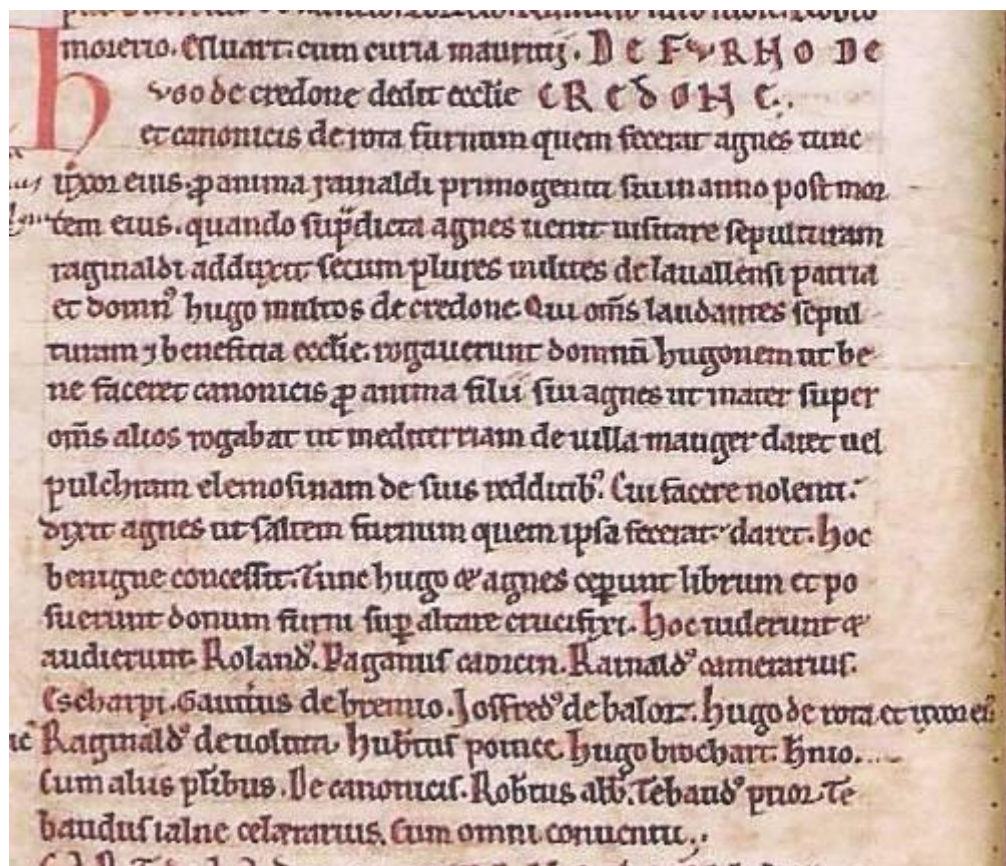 moierio. Estuart. cum curia mauritii. DE FURNO DE
hugo de credone dedit ecclie CREDONE.
et canonicis de rota furnum quem fecerat agnes tunc
uxor eius. ꝓ anima rainaldi primogeniti sui in anno post mor
tem eius. quando sup̃dicta agnes uenit uisitare sepulturam
raginaldi adduxit secum plures milites de lauallensi patria
et domnꝰ hugo multos de credone. Qui om̃s laudantes sepul
turam ⁊ beneficia ecclie. rogauerunt domnũ hugonem ut be
ne faceret canonicis ꝓ anima filii sui agnes ut mater super
om̃s alios rogabat ut medietriam de uilla mauger daret uel
pulchram elemosinam de suis redditibꝰ. Cui facere nolenti.
dixit agnes ut saltem furnum quem ipsa fecerat. daret. hoc
benigne concessit. Tunc hugo & agnes ceperunt librum et po
suerunt donum furni suꝑ altare crucifixi. hoc uiderunt &
audierunt. Rolandꝰ. Paganus Rainaldꝰ camerarius.
Escharpi. Gauinus de bremio. Joffredꝰ de balorz. hugo de rota et uxor ei
Raginaldꝰ de uolum. hub̃tus poince. hugo brochart. h̃nio.
Cum aliis pl̃ibus. De canonicis. Rob̃tus abb. Tebaudꝰ prior. Te
baudus ialne celararius. Cum omni conuentu.